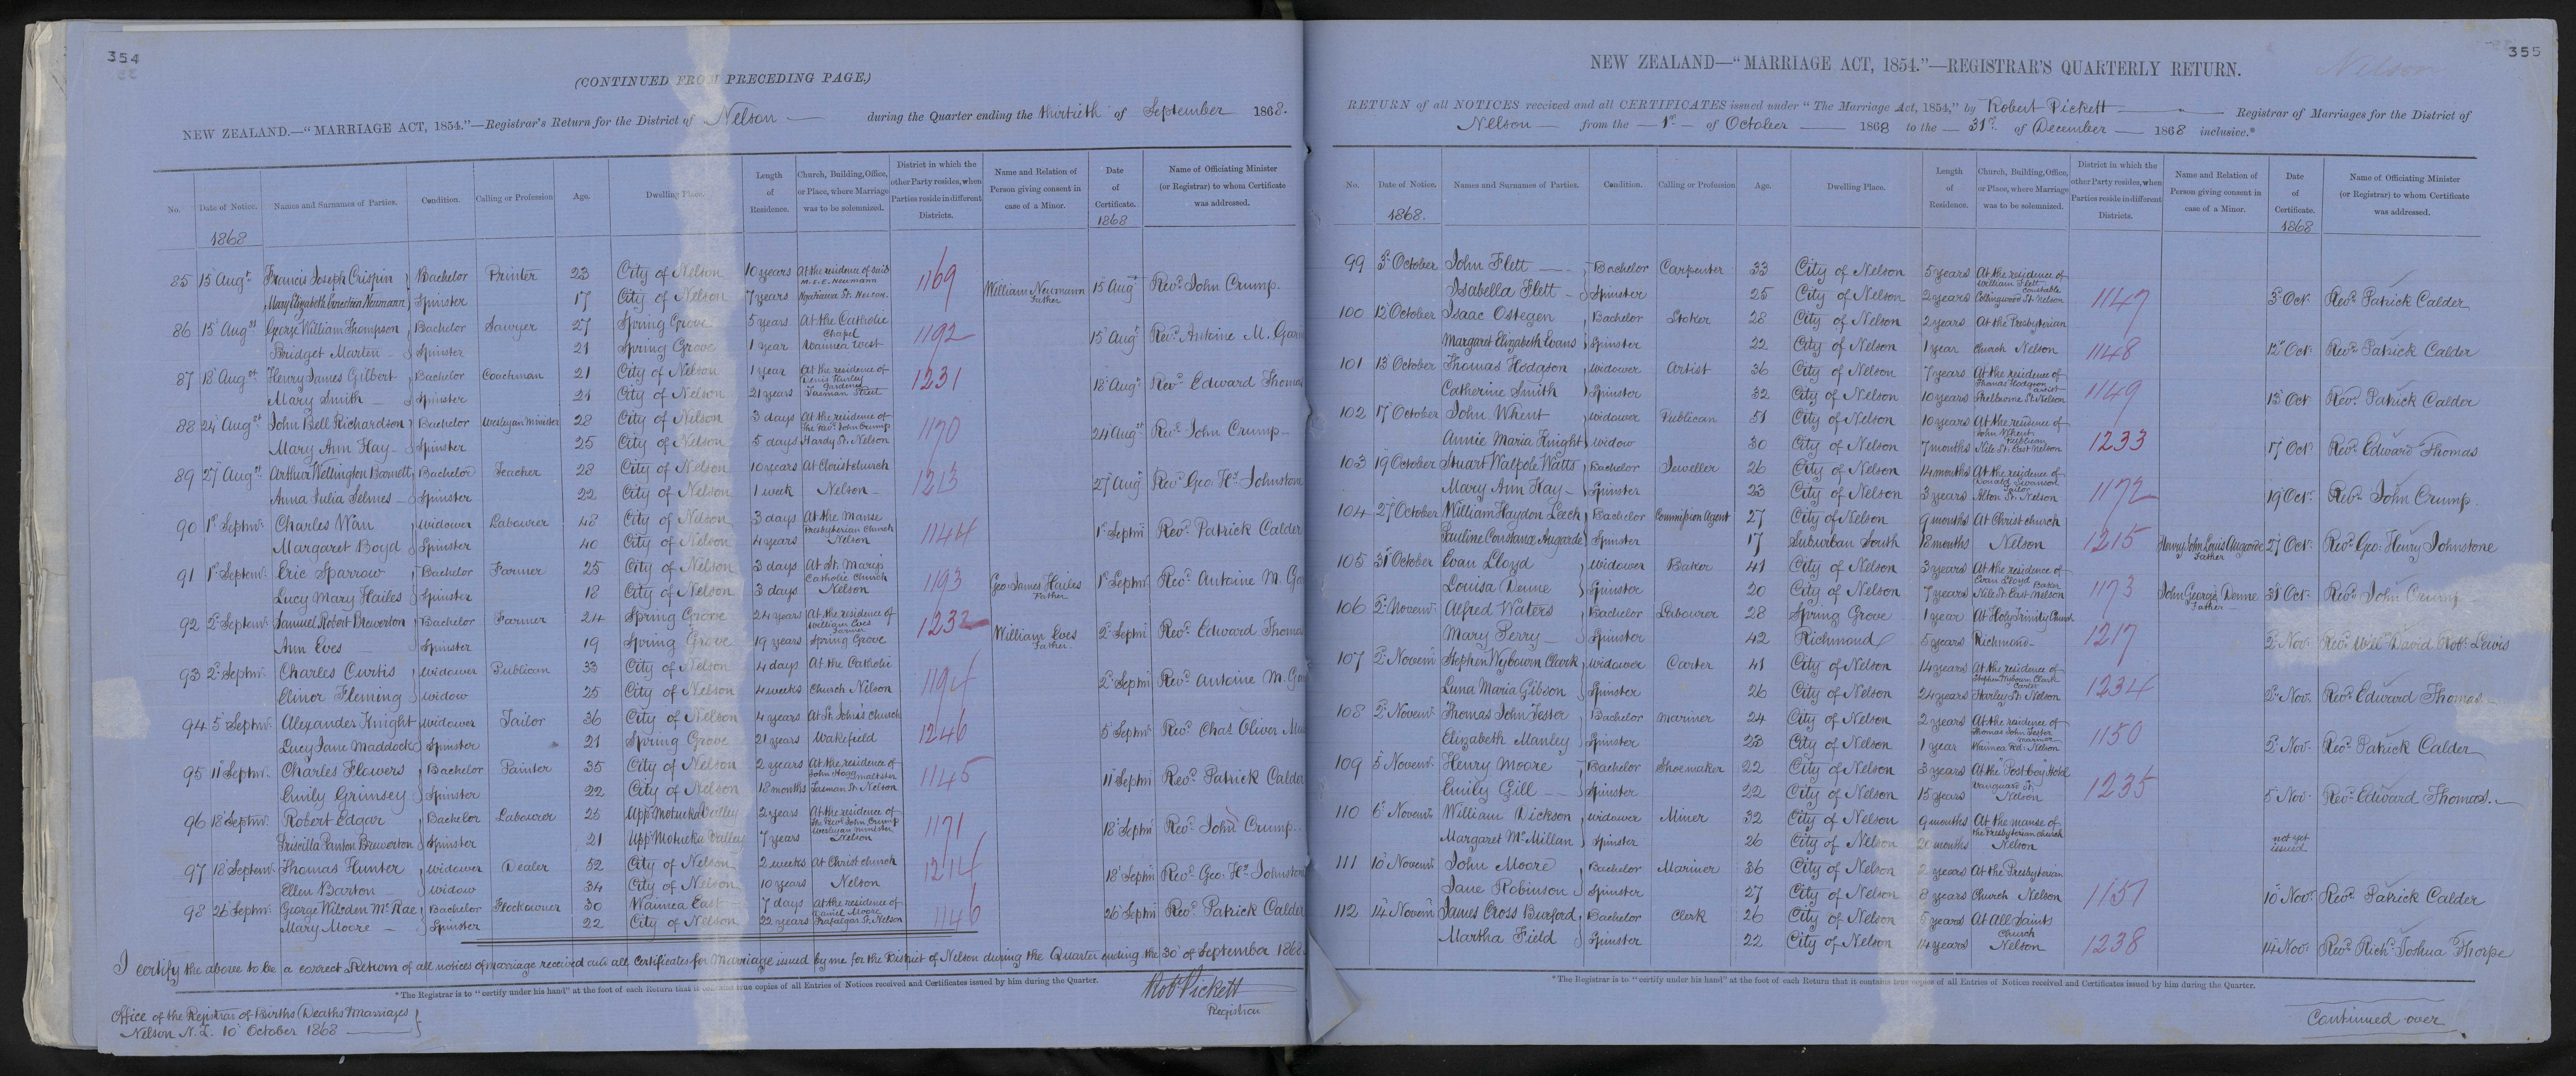 354
(CONTINUED FROM PRECEDING PAGE.)
NEW ZEALAND.—"MARRIAGE ACT, 1854."—Registrar's Return for the District of Nelson — during the Quarter ending the thirtieth of September 1868.
No. Date of Notice. Names and Surnames of Parties. Condition. Calling or Profession Age. Dwelling Place. Length of Residence. Church, Building, Office, or Place, where Marriage was to be solemnized. District in which the other Party resides, when Parties reside in different Districts. Name and Relation of Person giving consent in case of a Minor. Date of Certificate. Name of Officiating Minister (or Registrar) to whom Certificate was addressed.
1868 1868
85 15 Augt Francis Joseph Crispin Bachelor Printer 23 City of Nelson 10 years At the residence of said M. E. E. Neumann 1169 William Neumann Father 15 Augt Revd. John Crump.
Mary Elizabeth Ernestina Neumann Spinster 17 City of Nelson 7 years St. Nelson.
86 15 Augst George William Thompson Bachelor Sawyer 27 Spring Grove 5 years At the Catholic Chapel 1192 15 Augt Revd. Antoine M. Garin
Bridget Martin — Spinster 21 Spring Grove 1 year Waimea West
87 18 Augst Henry James Gilbert Bachelor Coachman 21 City of Nelson 1 year At the residence of Gardener 1231 18 Augt Revd Edward Thomas
Mary Smith — Spinster 21 City of Nelson 21 years Tasman Street
88 24 Augst John Bell Richardson Bachelor Wesleyan Minister 28 City of Nelson 3 days At the residence of the Revd. John Crump 1170 24 Augst Revd. John Crump —
Mary Ann Hay — Spinster 25 City of Nelson 5 days Hardy St. Nelson
89 27 Augst. Arthur Wellington Barnett Bachelor Teacher 28 City of Nelson 10 years At Christchurch 1213 27 Augt Revd Geo: Hy Johnstone
Anna Julia Selmes — Spinster 22 City of Nelson 1 week Nelson —
90 1st Septmr. Charles Warr Widower Labourer 48 City of Nelson 3 days At the Manse Presbyterian Church 1144 1st Septmr Revd. Patrick Calder
Margaret Boyd Spinster 40 City of Nelson 4 years Nelson
91 1st Septemr. Eric Sparrow Bachelor Farmer 25 City of Nelson 3 days At St. Mary's Catholic Church 1193 Geo James Hailes Father 1st Septmr. Revd. Antoine M. Garin
Lucy Mary Hailes Spinster 18 City of Nelson 3 days Nelson
92 2d Septemr. Samuel Robert Brewerton Bachelor Farmer 24 Spring Grove 24 years At the residence of William Eves Farmer 1232 William Eves Father. 2d Septmr Revd. Edward Thomas
Ann Eves — Spinster 19 Spring Grove 19 years Spring Grove
93 2d Septmr. Charles Curtis Widower Publican 33 City of Nelson 4 days At the Catholic 1194 2d Septmr Revd Antoine M. Garin
Elinor Fleming Widow 25 City of Nelson 4 weeks Church Nelson
94 5 Septmr. Alexander Knight Widower Tailor 36 City of Nelson 4 years At St. John's church 1246 5 Septmr. Revd. Chas. Oliver
Lucy Jane Maddock Spinster 21 Spring Grove 21 years Wakefield
95 11 Septmr. Charles Flowers Bachelor Painter 35 City of Nelson 2 years At the residence of John Hogg Maltster 1145 11 Septmr Revd. Patrick Calder
Emily Grimsey Spinster 22 City of Nelson 18 months Tasman St. Nelson
96 18 Septmr. Robert Edgar Bachelor Labourer 25 Upp Motueka Valley 2 years At the residence of the Revd John Crump Wesleyan Minister 1171 18 Septmr Revd. John Crump —
Priscilla Panton Brewerton Spinster 21 Upp Motueka Valley 7 years Nelson
97 18 Septemr. Thomas Hunter Widower Dealer 52 City of Nelson 2 weeks At Christ church 1214 18 Septmr Revd. Geo: Hy Johnstone
Ellen Barton — Widow 34 City of Nelson 10 years Nelson
98 26 Septmr. George Wilsden McRae Bachelor Stockowner 30 Waimea East 7 days At the residence of Daniel Moore 1146 26 Septmr Revd. Patrick Calder
Mary Moore — Spinster 22 City of Nelson 22 years Trafalgar St. Nelson
I certify the above to be a correct Return of all notices of marriage received and all certificates for Marriage issued by me for the District of Nelson during the Quarter ending the 30 of September 1868.
* The Registrar is to "certify under his hand" at the foot of each Return that it contains true copies of all Entries of Notices received and Certificates issued by him during the Quarter.
Robt Pickett
Registrar
Office of the Registrar of Births Deaths Marriages
Nelson N. Z. 10 October 1868
355
Nelson
NEW ZEALAND—"MARRIAGE ACT, 1854."—REGISTRAR'S QUARTERLY RETURN.
RETURN of all NOTICES received and all CERTIFICATES issued under "The Marriage Act, 1854," by Robert Pickett — Registrar of Marriages for the District of
Nelson — from the — 1st — of October — 1868 to the — 31st. of December — 1868 inclusive.*
No. Date of Notice. Names and Surnames of Parties. Condition. Calling or Profession Age. Dwelling Place. Length of Residence. Church, Building, Office, or Place, where Marriage was to be solemnized. District in which the other Party resides, when Parties reside in different Districts. Name and Relation of Person giving consent in case of a Minor. Date of Certificate. Name of Officiating Minister (or Registrar) to whom Certificate was addressed.
1868. 1868
99 3d October John Flett — Bachelor Carpenter 33 City of Nelson 5 years At the residence of William Flett Constable 1147 3d Oct. Revd. Patrick Calder
Isabella Flett — Spinster 25 City of Nelson 2 years Collingwood St. Nelson
100 12 October Isaac Ostegen Bachelor Stoker 28 City of Nelson 2 years At the Presbyterian 1148 12 Oct. Revd. Patrick Calder
Margaret Elizabeth Evans Spinster 22 City of Nelson 1 year Church Nelson
101 13 October Thomas Hodgson Widower Artist 36 City of Nelson 7 years At the residence of Thomas Hodgson artist 1149 13 Oct Revd. Patrick Calder
Catherine Smith Spinster 32 City of Nelson 10 years Shelbourne St. Nelson
102 17 October John Whent Widower Publican 51 City of Nelson 10 years At the residence of John Whent Publican 1233 17 Oct. Revd. Edward Thomas
Annie Maria Knight Widow 30 City of Nelson 7 months Nile St. East Nelson
103 19 October Stuart Walpole Watts Bachelor Jeweller 26 City of Nelson 14 months At the residence of Donald Swanson Tailor 1172 19 Oct. Revd. John Crump
Mary Ann Hay — Spinster 23 City of Nelson 3 years Alton St. Nelson
104 27 October William Haydon Leech Bachelor Commission Agent 27 City of Nelson 9 months At Christ church 1215 Henry John Louis Augarde Father 27 Oct. Revd. Geo: Henry Johnstone
Pauline Constance Augarde Spinster 17 Suburban South 18 months Nelson
105 31st October Evan Lloyd Widower Baker 41 City of Nelson 3 years At the residence of Evan Lloyd Baker 1173 John George Denne Father — 31 Oct. Revd. John Crump
Louisa Denne Spinster 20 City of Nelson 7 years Nile St. East Nelson
106 2d Novemr. Alfred Waters Bachelor Labourer 28 Spring Grove 1 year At Holy Trinity Church 1217 2d Nov. Revd. Willm David Robt Lewis
Mary Perry — Spinster 42 Richmond 5 years Richmond —
107 2d Novemr Stephen Wybourn Clark Widower Carter 41 City of Nelson 14 years At the residence of Stephen Wybourn Clark Carter 1234 2d Nov. Revd. Edward Thomas —
Luna Maria Gibson Spinster 26 City of Nelson 24 years Harley St. Nelson
108 2d Novemr. Thomas John Tester Bachelor Mariner 24 City of Nelson 2 years At the residence of Thomas John Tester Mariner 1150 2d Nov. Revd. Patrick Calder
Elizabeth Manley Spinster 23 City of Nelson 1 year Waimea Rd. Nelson
109 5 Novemr. Henry Moore Bachelor Shoemaker 22 City of Nelson 3 years At the "Post boy" Hotel 1235 5 Nov. Revd. Edward Thomas. —
Emily Gill — Spinster 22 City of Nelson 15 years Vanguard St. Nelson
110 6 Novemr. William Dickson Widower Miner 32 City of Nelson 9 months At the manse of the Presbyterian church not yet issued
Margaret McMillan Spinster 26 City of Nelson months Nelson
111 10 Novemr. John Moore Bachelor Mariner 36 City of Nelson 2 years At the Presbyterian 1151 10 Nov. Revd. Patrick Calder
Jane Robinson Spinster 27 City of Nelson 8 years Church Nelson
112 14 Novemr James Cross Burford Bachelor Clerk 26 City of Nelson 5 years At All Saints Church 1238 14 Nov. Revd. Richd. Joshua Thorpe
Martha Field Spinster 22 City of Nelson 14 years Nelson
* The Registrar is to "certify under his hand" at the foot of each Return that it contains true copies of all Entries of Notices received and Certificates issued by him during the Quarter.
Continued over